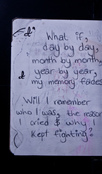 What if,
day by day,
month by month,
& year by year,
my memory fades
Will I remember
who I was, the reason
I cried & why I
kept fighting?